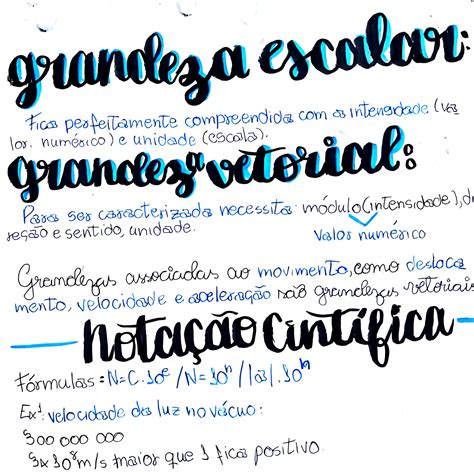 grandeza escalar:
Fica perfeitamente compreendida com a intensidade (va
lor numérico) e unidade (escala).
grandeza vetorial:
Para ser caracterizada necessita: módulo (intensidade), di
reção e sentido, unidade.
Valor numérico
Grandezas associadas ao movimento, como desloca
mento, velocidade e aceleração são grandezas vetoriais
Notação Cintífica
Fórmulas: N=C.10ᵉ / N=10ⁿ / |a|.10ⁿ
Ex¹: velocidade da luz no vácuo:
300 000 000
3x10⁸m/s maior que 1 fica positivo.